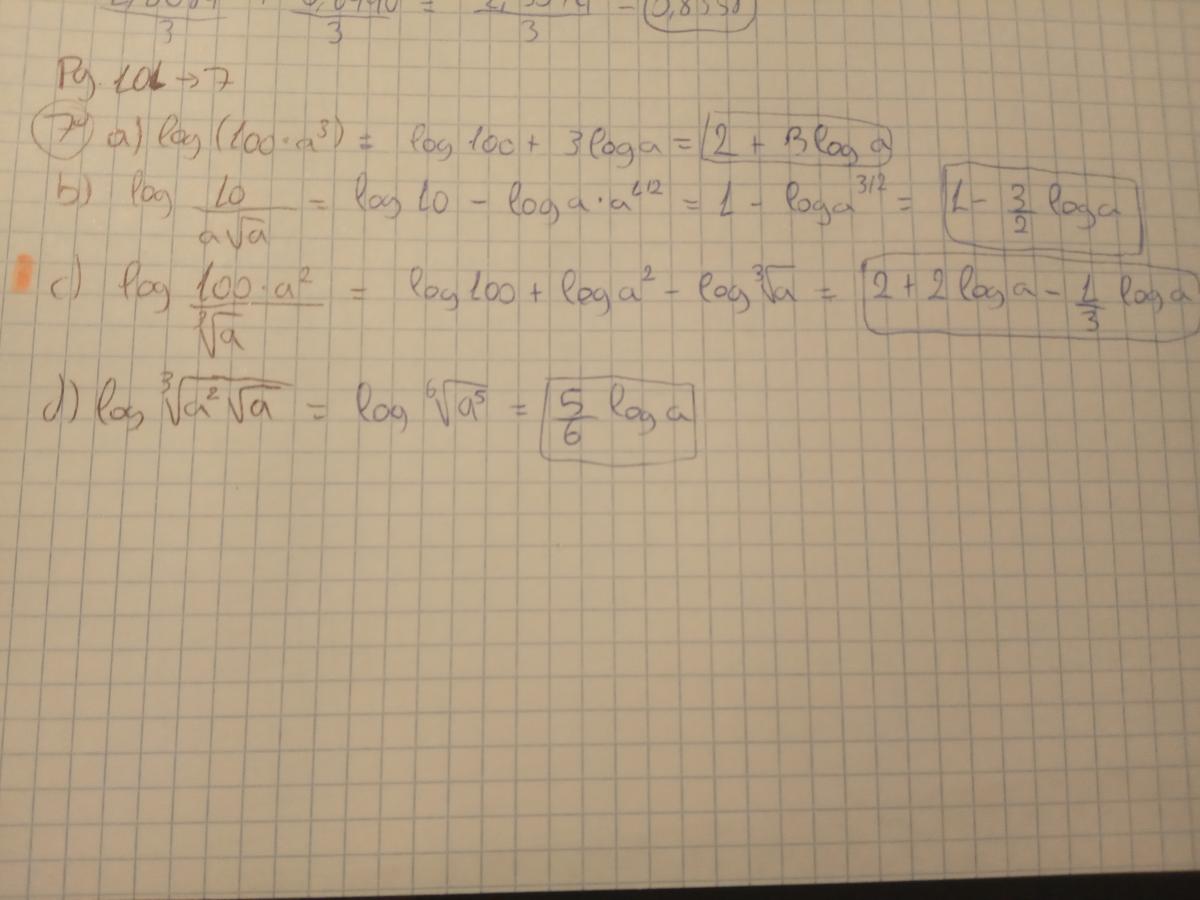 3 3 3
Pg. 101 → 7
7 a) log (100·a³) = log 100 + 3 log a = 2 + 3 log a
b) log 10/(a√a) = log 10 - log a·a^1/2 = 1 - log a^3/2 = 1 - 3/2 log a
c) log (100·a²)/∛a = log 100 + log a² - log ∛a = 2 + 2 log a - 1/3 log a
d) log ∛(a²√a) = log ⁶√a⁵ = 5/6 log a